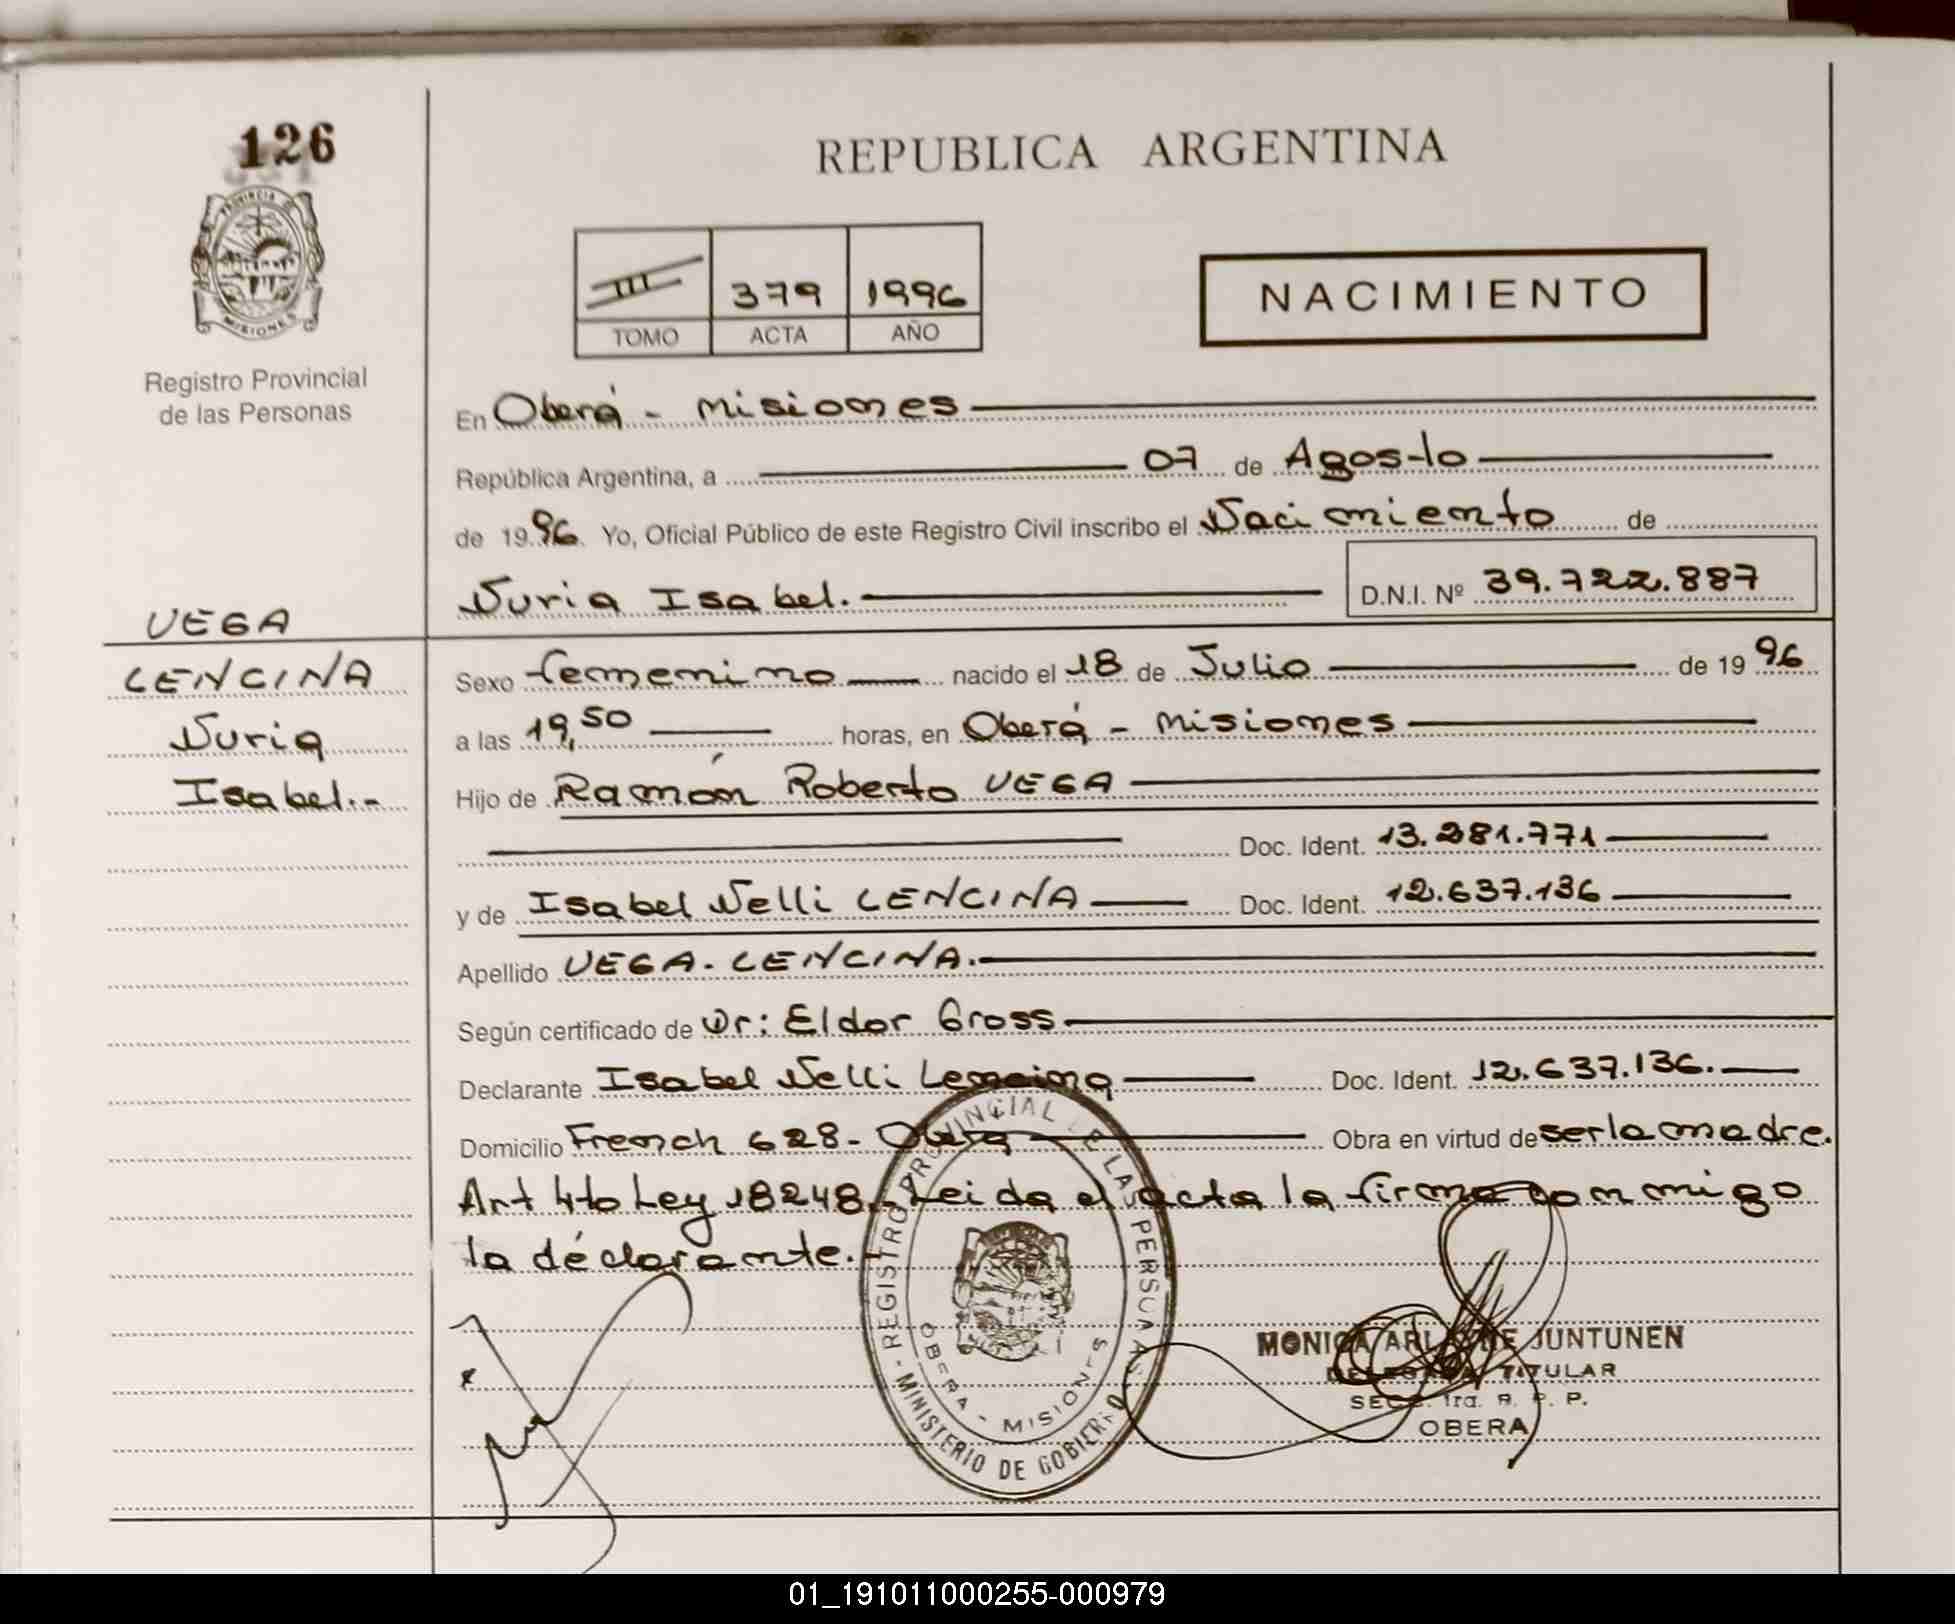 126
PROVINCIA DE
MISIONES
Registro Provincial
de las Personas
REPUBLICA ARGENTINA
III 379 1996
TOMO ACTA AÑO
NACIMIENTO
En Oberá - Misiones
República Argentina, a 07 de Agosto
de 1996 Yo, Oficial Público de este Registro Civil inscribo el Nacimiento de
Nuria Isabel. D.N.I. Nº 39.722.887
VEGA
LENCINA
Nuria
Isabel.-
Sexo femenino nacido el 18 de Julio de 1996
a las 19,50 horas, en Oberá - Misiones
Hijo de Ramón Roberto VEGA
Doc. Ident. 13.281.771
y de Isabel Nelli LENCINA Doc. Ident. 12.637.136
Apellido VEGA. LENCINA.
Según certificado de Dr: Eldor Gross
Declarante Isabel Nelli Lencina Doc. Ident. 12.637.136.
Domicilio French 628- Oberá Obra en virtud de ser la madre.
Art 4to Ley 18248.- Leida el acta la firma conmigo
la déclarante.
REGISTRO PROVINCIAL DE LAS PERSONAS
MINISTERIO DE GOBIERNO
OBERA - MISIONES
MONICA JUNTUNEN
DELEGADA TITULAR
SECC. 1ra. R. P. P.
OBERA
01_191011000255-000979